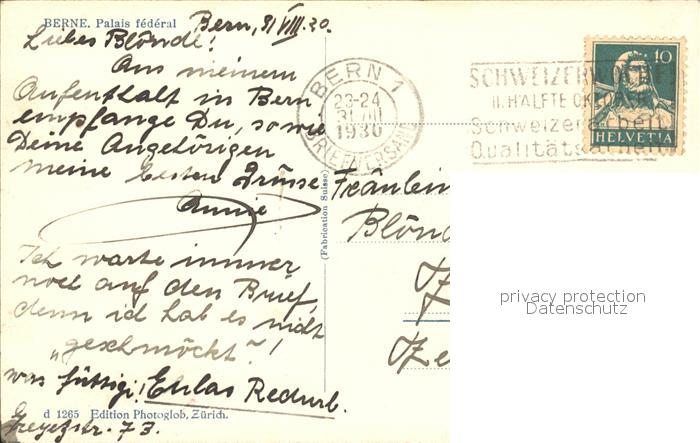 BERNE. Palais fédéral
Bern, 31 VIII. 30.
Liebes Blöndé!
Aus meinem
Aufenthalt in Bern
empfange Du, sowie
Deine Angehörigen
meine besten Grüsse
Annie
Ich warte immer
noch auf den Brief,
denn ich hab es nicht
„geschmöckt"!
was füttigi!
d 1265 Edition Photoglob, Zürich.
73.
(Fabrication Suisse)
BERN 1
23-24
31.VIII
1930
BRIEFVERSAND
SCHWEIZERWOCHE
II. HÄLFTE OKTOBER
Schweizer
Qualitäts
10
HELVETIA
Fräulein
Blönd
Ze
privacy protection
Datenschutz